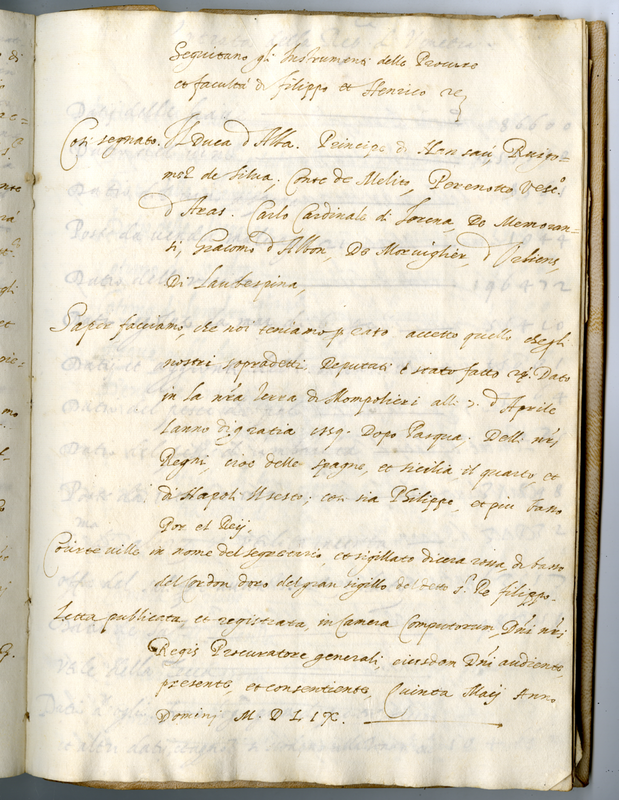 Seguitano gl' Instrumenti delle Procure
et facultà di filippo et Henrico
Così segnato. Il Duca d'Alba. Principe di Ruigo=
mez de Silua, Conte de Melito, Perenotto Vesc.o
d'Aras. Carlo Cardinale di Lorena, Do Memoran=
si, Giacomo d'Albon, De Moruiglier, d'
Di Laubespina
Saper facciamo, che noi teniamo p accetto quello che gli
nostri sopradetti Deputati è stato fatto Dato
in la nra terra di alli d'Aprile
l'anno di gratia 1559. Dopo Pasqua. Delli nri
Reghi, cioè delle spagne, et sicilia, il quarto et
di Napoli il sesto; con sia Philippe, et più basso
Por el Rey;
Courteuille in nome del segretario, et sigillato di cera rossa, di basso
del cordon doro del gran sigillo del detto s.r Re filippo.
Letta publicata, et registrata, in Camera Computorum Dni nri
Regis Procuratore generali eiusdem Dni audiente,
presente, et consentiente, Quinta Maij Anno
Domini M. D L IX.